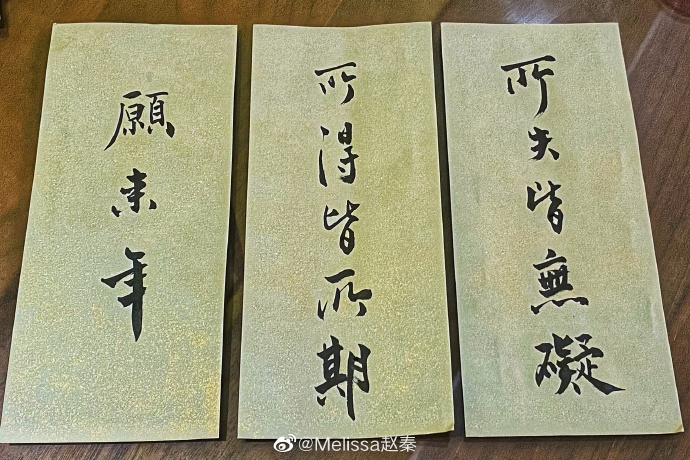 願来年
所得皆所期
所失皆無礙
@Melissa赵秦